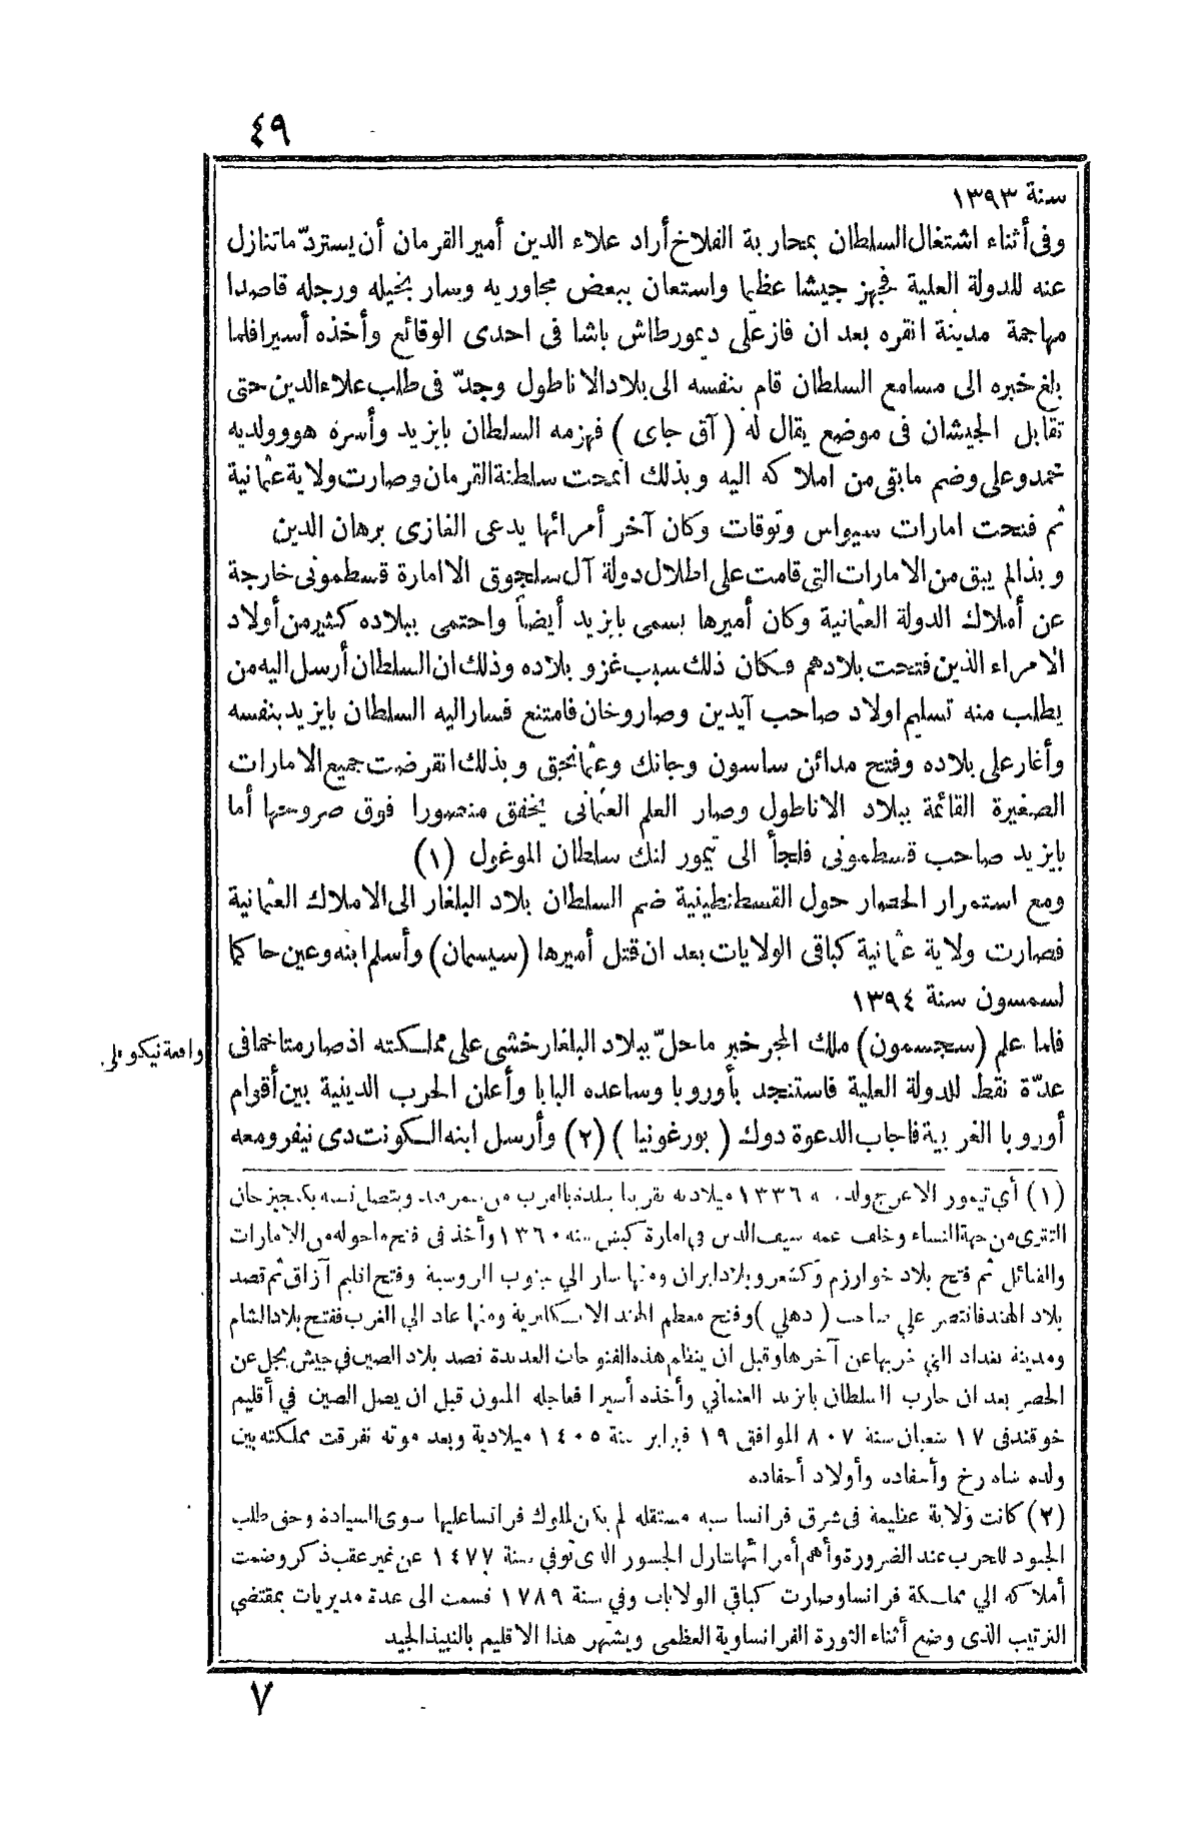 ٤٩
سنة ١٣٩٣
وفى أثناء اشتغال السلطان بمحاربة الفلاخ أراد علاء الدين أمير القرمان أن يستردّ ماتنازل
عنه للدولة العلية فجهز جيشا عظيما واستعان ببعض مجاوريه وسار بخيله ورجله قاصدا
مهاجمة مدينة انقره بعد ان فاز على ديمورطاش باشا فى احدى الوقائع وأخذه أسيرا فلما
بلغ خبره الى مسامع السلطان قام بنفسه الى بلاد الاناطول وجدّ فى طلب علاء الدين حتى
تقابل الجيشان فى موضع يقال له ( آق جاى ) فهزمه السلطان بايزيد وأسره هو وولديه
محمد وعلى وضم مابقى من املاكه اليه وبذلك انمحت سلطنة القرمان وصارت ولاية عثمانية
ثم فتحت امارات سيواس وتوقات وكان آخر أمرائها يدعى الغازى برهان الدين
وبذا لم يبق من الامارات التى قامت على اطلال دولة آل سلجوق الا امارة قسطمونى خارجة
عن أملاك الدولة العثمانية وكان أميرها يسمى بايزيد أيضاً واحتمى ببلاده كثير من أولاد
الامراء الذين فتحت بلادهم فكان ذلك سبب غزو بلاده وذلك ان السلطان أرسل اليه من
يطلب منه تسليم اولاد صاحب آيدين وصاروخان فامتنع فسار اليه السلطان بايزيد بنفسه
وأغار على بلاده وفتح مدائن ساسون وجانك وعثمانجق وبذلك انقرضت جميع الامارات
الصغيرة القائمة ببلاد الاناطول وصار العلم العثمانى يخفق منصورا فوق صروحها أما
بايزيد صاحب قسطمونى فلجأ الى تيمور لنك سلطان الموغول (١)
ومع استمرار الحصار حول القسطنطينية ضم السلطان بلاد البلغار الى الاملاك العثمانية
فصارت ولاية عثمانية كباقى الولايات بعد ان قتل أميرها (سيسمان) وأسلم ابنه وعين حاكما
لسمسون سنة ١٣٩٤
فلما علم (سجسمون) ملك المجر خبر ماحلّ ببلاد البلغار خشى على مملكته اذ صار متاخما فى
واقعة نيكوبلى
عدّة نقط للدولة العلية فاستنجد بأوروبا وساعده البابا وأعلن الحرب الدينية بين أقوام
أوروبا الغربية فاجاب الدعوة دوك ( بورغونيا ) (٢) وأرسل ابنه الكونت دى نيفر ومعه
(١) أي تيمور الاعرج ولد ١٣٣٦ ميلادية تقريبا ببلدة بالقرب من سمرقند ويتصل نسبه بكنجيز خان
التترى من جهة النساء وخلف عمه سيف الدين في امارة كيش سنه ١٣٦٠ وأخذ فى فتح ماحوله من الامارات
والقبائل ثم فتح بلاد خوارزم وكشغر وبلاد ايران ومنها سار الي جنوب الروسية وفتح اقليم آزاق ثم قصد
بلاد الهند فانتصر علي صاحب ( دهلي ) وفتح معظم الهند الاسكندرية ومنها عاد الي الغرب ففتح بلاد الشام
ومدينة بغداد التي خربها عن آخرها وقبل ان ينظم هذه الفتوحات العديدة قصد بلاد الصين في جيش يجل عن
الحصر بعد ان حارب السلطان بايزيد العثماني وأخذه أسيرا فعاجله المنون قبل ان يصل الصين في أقليم
خوقند فى ١٧ شعبان سنة ٨٠٧ الموافق ١٩ فبراير سنة ١٤٠٥ ميلادية وبعد موته تفرقت مملكته بين
ولده شاه رخ وأحفاده وأولاد أحفاده
(٢) كانت ولاية عظيمة فى شرق فرانسا شبه مستقله لم يكن لملوك فرانسا عليها سوى السيادة وحق طلب
الجنود للحرب عند الضرورة وأهم أمرائها شارل الجسور الذى توفي سنة ١٤٧٧ عن غير عقب ذكر وضمت
أملاكه الي مملكة فرانسا وصارت كباقي الولايات وفي سنة ١٧٨٩ قسمت الى عدة مديريات بمقتضي
الترتيب الذى وضع أثناء الثورة الفرانساوية العظمى ويشتهر هذا الاقليم بالنبيذ الجيد
٧